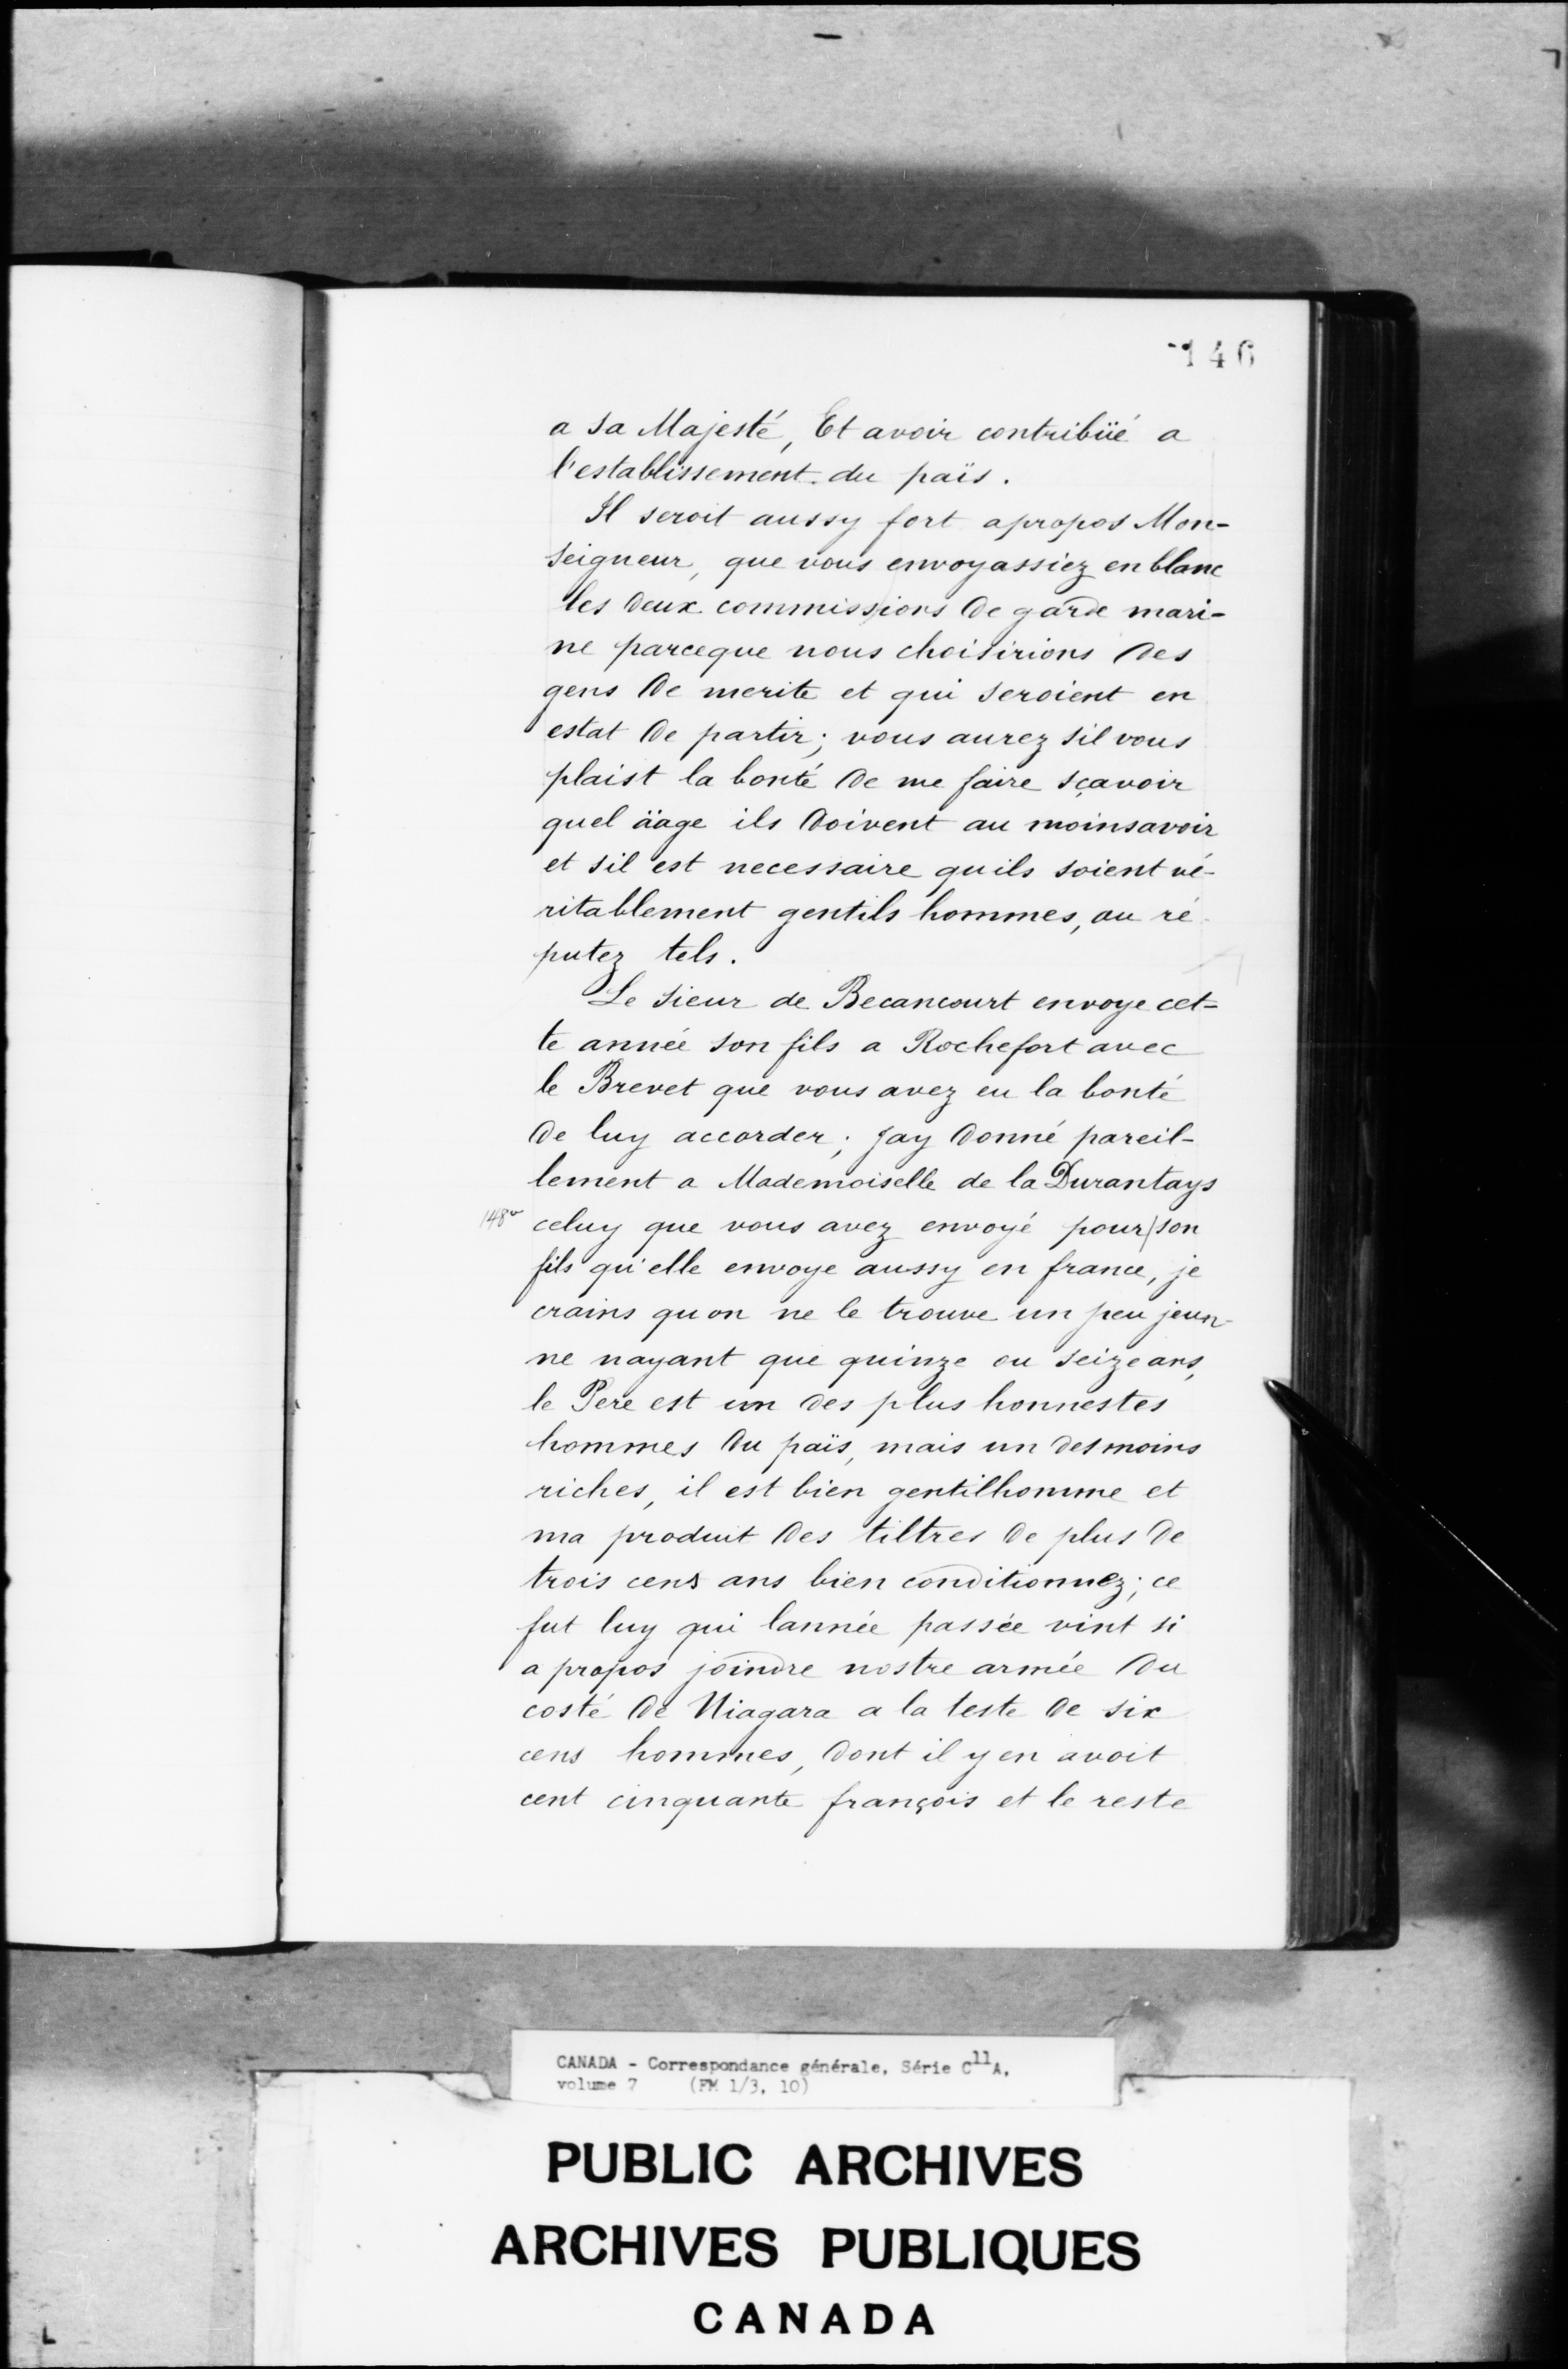 146
a sa Majesté, Et avoir contribüé a
l'establissement du païs.
Il seroit aussy fort apropos Mon-
seigneur, que vous envoyassiez en blanc
les deux commissions de garde mari-
ne parceque nous choisirions des
gens de merite et qui seroient en
estat de partir; vous aurez sil vous
plaist la bonté de me faire sçavoir
quel äage ils doivent au moins avoir
et sil est necessaire quils soient vé-
ritablement gentils hommes, ou ré-
putez tels.
Le sieur de Becancourt envoye cet-
te année son fils a Rochefort avec
le Brevet que vous avez eu la bonté
de luy accorder; jay donné pareil-
lement a Mademoiselle de la Durantays
148v celuy que vous avez envoyé pour/son
fils qu'elle envoye aussy en france, je
crains quon ne le trouve un peu jeun-
ne nayant que quinze ou seize ans,
le Pere est un des plus honnestes
hommes du païs, mais un des moins
riches, il est bien gentilhomme et
ma produit des tiltres de plus de
trois cens ans bien conditionnez; ce
fut luy qui lannée passée vint si
a propos joindre nostre armée du
costé de Niagara a la teste de six
cens hommes, dont il y en avoit
cent cinquante françois et le reste
CANADA - Correspondance générale, Série C11A,
volume 7 (FM 1/3, 10)
PUBLIC ARCHIVES
ARCHIVES PUBLIQUES
CANADA
L